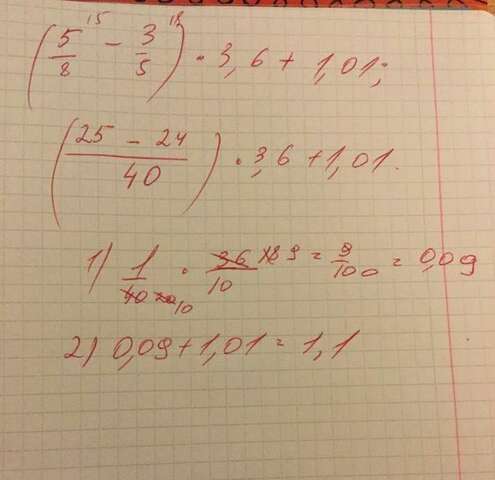 (5/8 15 - 3/5 18) · 3,6 + 1,01;
(25 - 24 / 40) · 3,6 + 1,01.
1) 1/40 20 10 · 36/10 18 9 = 9/100 = 0,09
2) 0,09 + 1,01 = 1,1